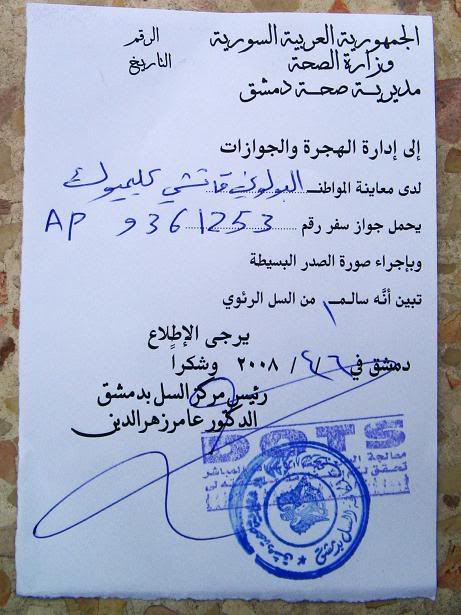 الجمهورية العربية السورية
وزارة الصحة
مديرية صحة دمشق
الرقم
التاريخ
إلى إدارة الهجرة والجوازات
لدى معاينة المواطنـ البولوني
يحمل جواز سفر رقم AP 9361253
وبإجراء صورة الصدر البسيطة
تبين أنَّه سالمـ ا من السل الرئوي
يرجى الإطلاع
دمشق في ٦/٤/٢٠٠٨ وشكراً
رئيس مركز السل بدمشق
الدكتور عامر زهر الدين
DOTS